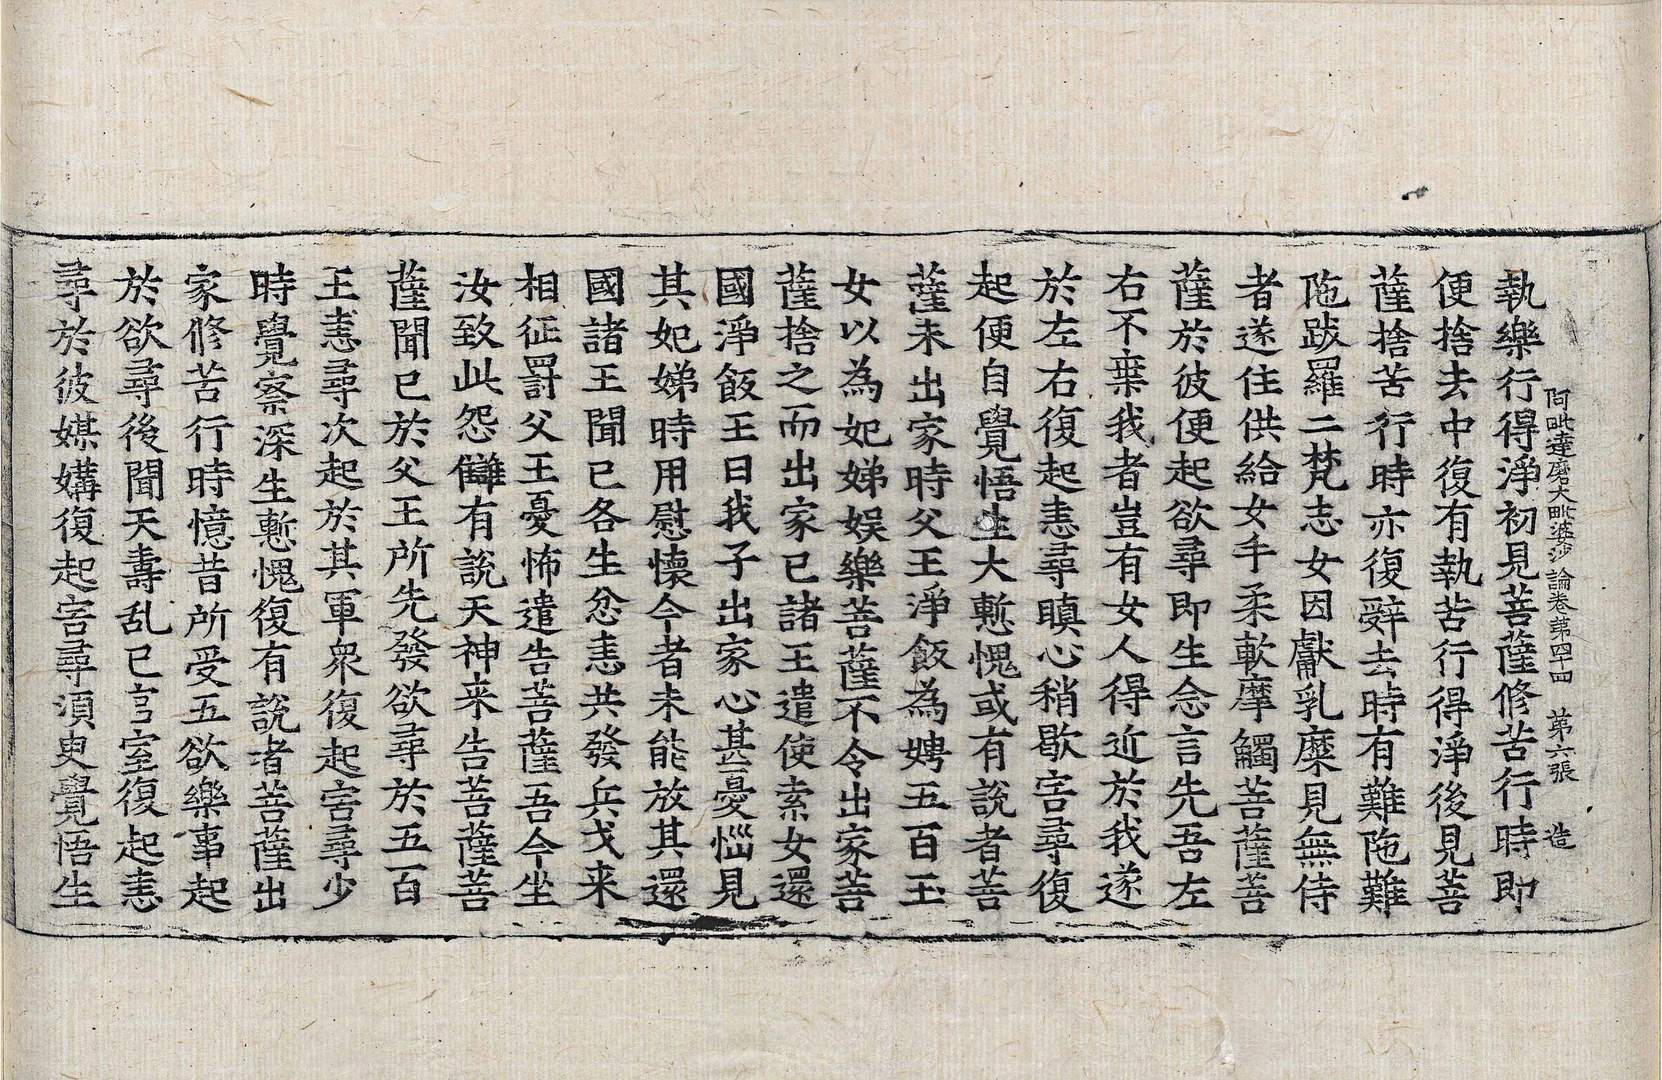 阿毗達磨大毗婆沙論卷苐四十四 第六張 造
執樂行得淨初見菩薩修苦行時即
便捨去中復有執苦行得淨後見菩
薩捨苦行時亦復辤去時有難陁難
陁跋羅二梵志女因獻乳糜見無侍
者遂住供給女手柔軟摩觸菩薩菩
薩於彼便起欲尋即生念言先吾左
右不棄我者豈有女人得近於我遂
於左右復起恚尋瞋心稍歇害尋復
起便自覺悟生大慙愧或有說者菩
薩未出家時父王淨飯為娉五百玉
女以為妃娣娛樂菩薩不令出家菩
薩捨之而出家已諸王遣使索女還
國淨飯王曰我子出家心甚憂惱見
其妃娣時用慰懷今者未能放其還
國諸王聞已各生忿恚共發兵戈来
相征罰父王憂怖遣告菩薩吾今坐
汝致此怨讎有說天神来告菩薩菩
薩聞已於父王所先發欲尋於五百
王恚尋次起於其軍衆復起害尋少
時覺察深生慙愧復有說者菩薩出
家修苦行時憶昔所受五欲樂事起
於欲尋後聞天壽乱已宫室復起恚
尋於彼媒媾復起害尋湏臾覺悟生